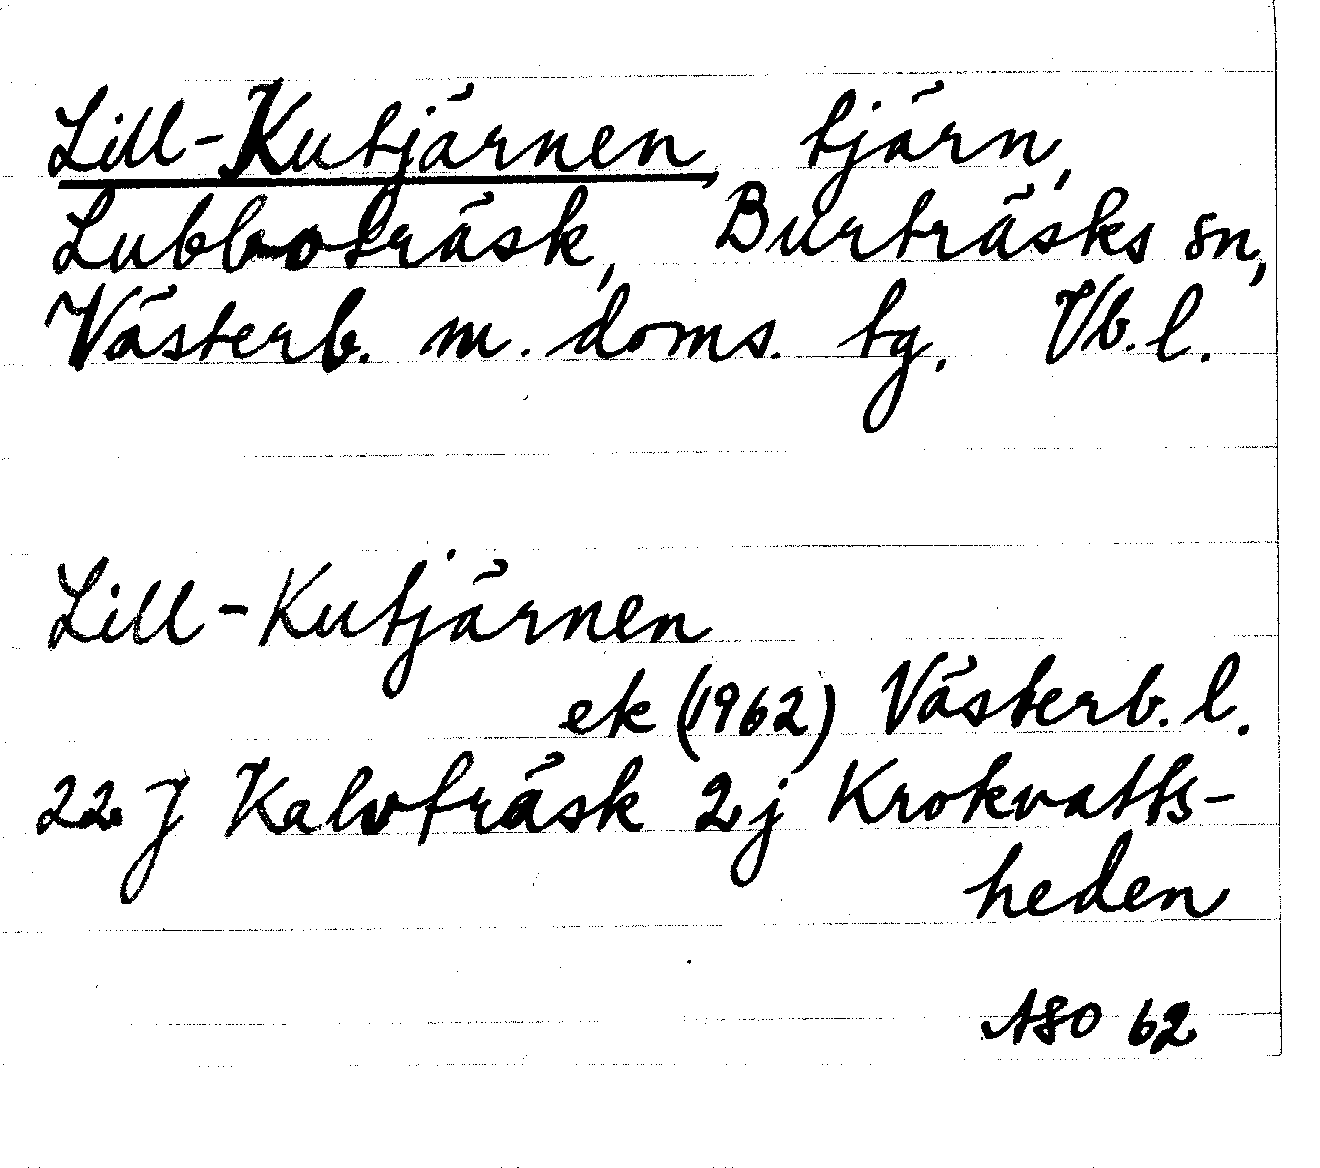 Lill-Kutjärnen, tjärn,
Lubboträsk, Burträsks sn,
Västerb. m. doms. tg. Vb. l.
Lill-Kutjärnen
ek (1962) Västerb. l.
22 J Kalvträsk 2 j Krokvatts-
heden
ASO 62